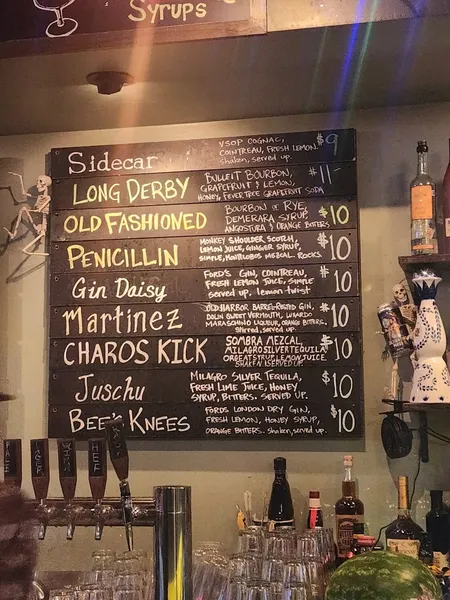 Syrups
Sidecar
VSOP COGNAC,
COINTREAU, FRESH LEMON.
shaken, served up.
$9
LONG DERBY
BULLEIT BOURBON,
GRAPEFRUIT & LEMON,
HONEY, FEVER TREE GRAPEFRUIT SODA
$11-
OLD FASHIONED
BOURBON or RYE,
DEMERARA SYRUP,
ANGOSTURA & ORANGE BITTERS
$10
PENICILLIN
MONKEY SHOULDER SCOTCH,
LEMON JUICE, GINGER SYRUP,
SIMPLE, MEZCAL. ROCKS.
$10
Gin Daisy
FORD'S GIN, COINTREAU,
FRESH LEMON JUICE, SIMPLE
served up. lemon twist
$10
Martinez
OLD HARBOR BARREL-RESTED GIN,
DOLIN SWEET VERMOUTH, LUXARDO
MARASCHINO LIQUEUR, ORANGE BITTERS.
Stirred, served up.
$10
CHAROS KICK
SOMBRA MEZCAL,
MILAGRO SILVER TEQUILA,
ORGEAT SYRUP, LEMON JUICE.
SHAKEN & SERVED UP.
$10
Juschu
MILAGRO SILVER TEQUILA,
FRESH LIME JUICE, HONEY
SYRUP, BITTERS. SERVED UP.
$10
BEE'S KNEES
FORDS LONDON DRY GIN,
FRESH LEMON, HONEY SYRUP,
ORANGE BITTERS. shaken, served up.
$10